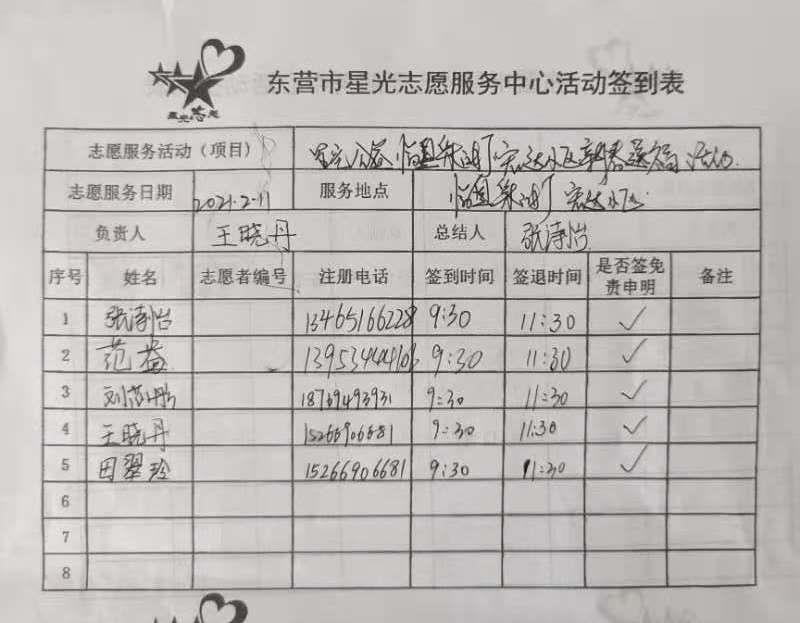 星光志愿
东营市星光志愿服务中心活动签到表
志愿服务活动（项目） 星光公益 临盘采油厂宏达小区新春送福活动
志愿服务日期 2021.2.11 服务地点 临盘采油厂宏达小区
负责人 王晓丹 总结人 张涛怡
序号 姓名 志愿者编号 注册电话 签到时间 签退时间 是否签免责申明 备注
1 张涛怡 13465166228 9:30 11:30 ✓
2 范益 9:30 11:30 ✓
3 18769493931 9:30 11:30 ✓
4 王晓丹 15266906681 9:30 11:30 ✓
5 田翠玲 15266906681 9:30 11:30 ✓
6
7
8